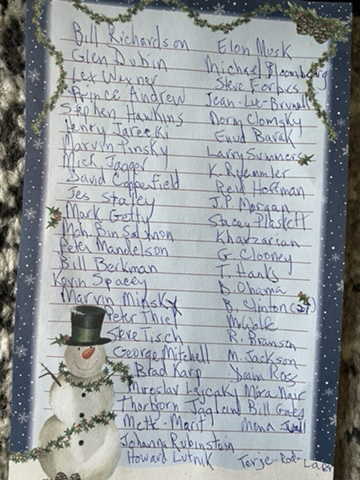 Bill Richardson Elon Musk
Glen Dubin Michael Bloomberg
Lex Wexner Steve Forbes
Prince Andrew Jean-Luc-Brunell
Stephen Hawkins Norm Clomsky
Henry Jarecki Enud Barak
Marvin Pinsky Larry Summers
Mick Jagger K. Ruemmler
David Copperfield Reid Hoffman
Jes Stalley J.P. Morgan
Mark Getty Stacey Plaskett
Moh Bin Salmon Kharzarian
Peter Mandelson G. Clooney
Bill Berkman T. Hanks
Kevin Spacey B. Obama
Marvin Minsky B. Clinton
Peter Thiel M. Wolf
Steve Tisch R. Branson
George Mitchell M. Jackson
Brad Karp Ross
Miroslav Lajcaky Mira Nair
Thorborn Jagland Bill Gates
Mett-Marit Mona
Johanna Rubinstein
Howard Lutnik Terje